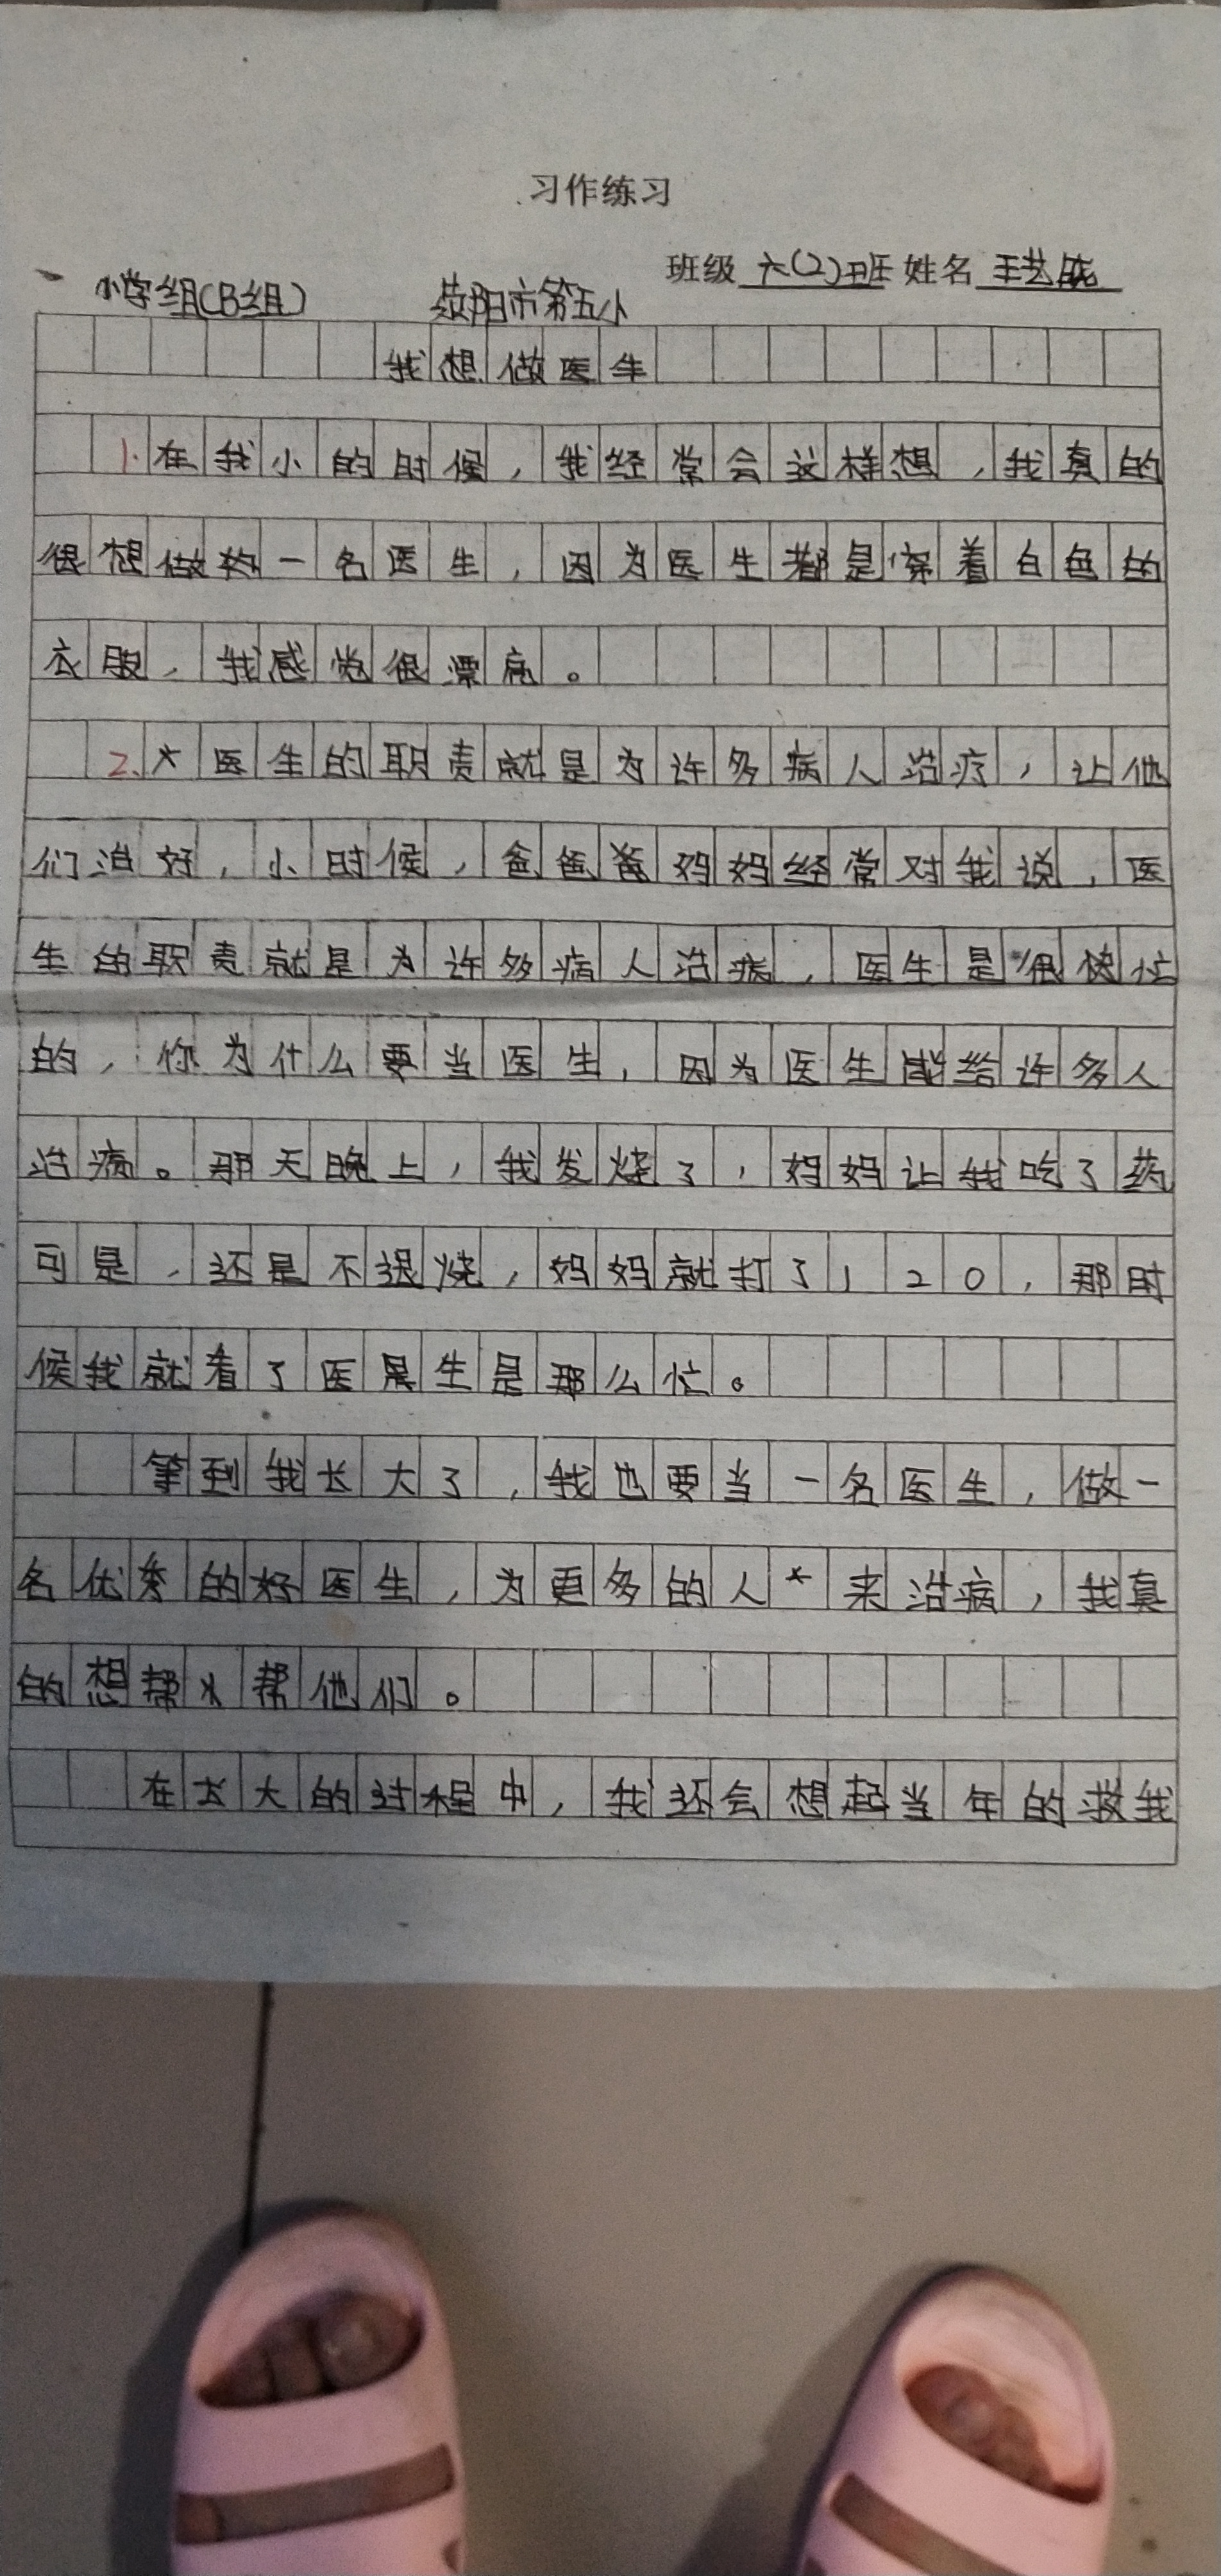 习作练习
班级 六(2)班 姓名 王艺
小学组(B组) 荥阳市第五小
我想做医生
1.在我小的时候，我经常会这样想，我真的
很想做一名医生，因为医生都是穿着白色的
衣服，我感觉很漂亮。
2.医生的职责就是为许多病人治疗，让他
们治好，小时候，爸爸妈妈经常对我说，医
生的职责就是为许多病人治病，医生是很忙
的，你为什么要当医生，因为医生能给许多人
治病。那天晚上，我发烧了，妈妈让我吃了药
可是，还是不退烧，妈妈就打了120，那时
候我就看了医生是那么忙。
等到我长大了，我也要当一名医生，做一
名优秀的好医生，为更多的人来治病，我真
的想帮帮他们。
在长大的过程中，我还会想起当年的救我